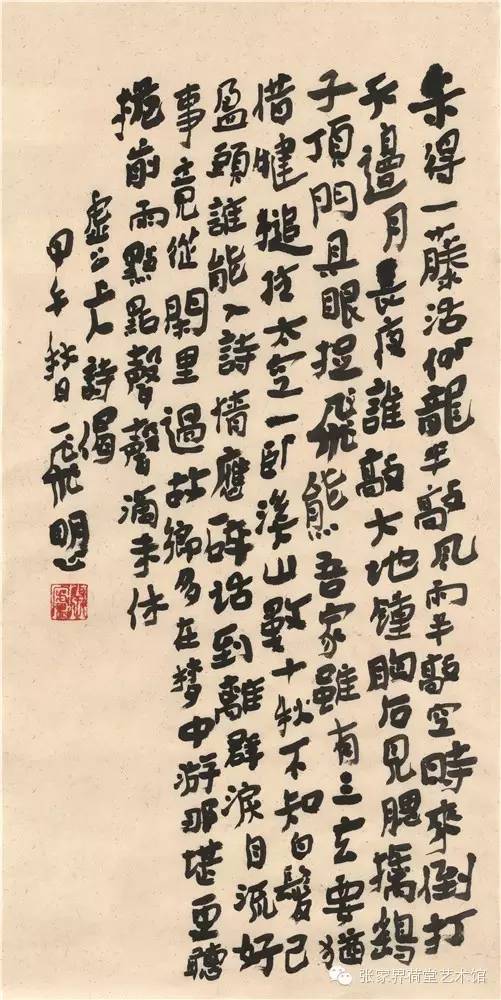 得一藤活似龍半敲風雨半敲空時來倒打
天邊月長夜誰敲大地鐘胸后見腮擒鷄
子頂門具眼捉飛熊吾家雖有三玄要猶
惜犍槌挂太空一卧溪山數十秋不知白髮已
盈頭誰能入詩情應碎話到離群淚自流好
事竟從閑里過故鄉多在夢中游那堪更聽
檐前雨點點聲聲滴未休
虛公上人詩偈
甲午秋日一飛明
张家界荷堂艺术馆